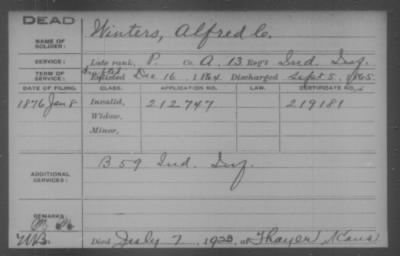 DEAD
NAME OF SOLDIER: Winters, Alfred C.
SERVICE: Late rank, P. Co. A. 13 Reg't Ind. Inf.
TERM OF SERVICE: Drafted Enlisted Dec 16, 1864 Discharged Sept 5, 1865
DATE OF FILING. CLASS. APPLICATION NO. LAW. CERTIFICATE NO.
1876 Jan 8 Invalid, 212747 219181
Widow,
Minor,
ADDITIONAL SERVICES: B 59 Ind. Inf.
REMARKS:
Died July 7, 1923, at Thayer Kans